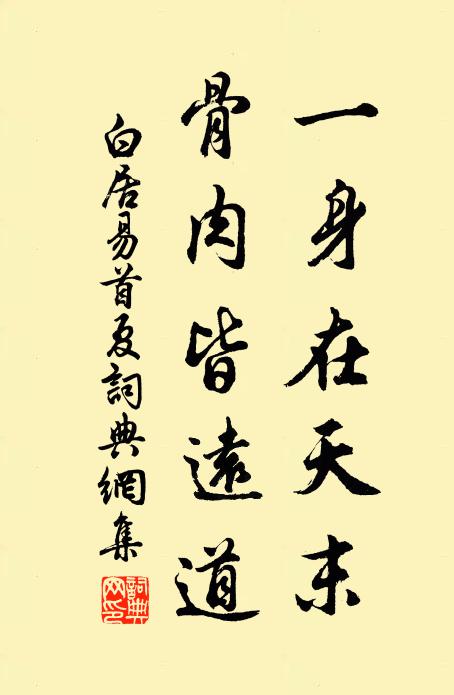 一身在天末
骨肉皆遠道
白居易首夏詞典網集
詞典網印